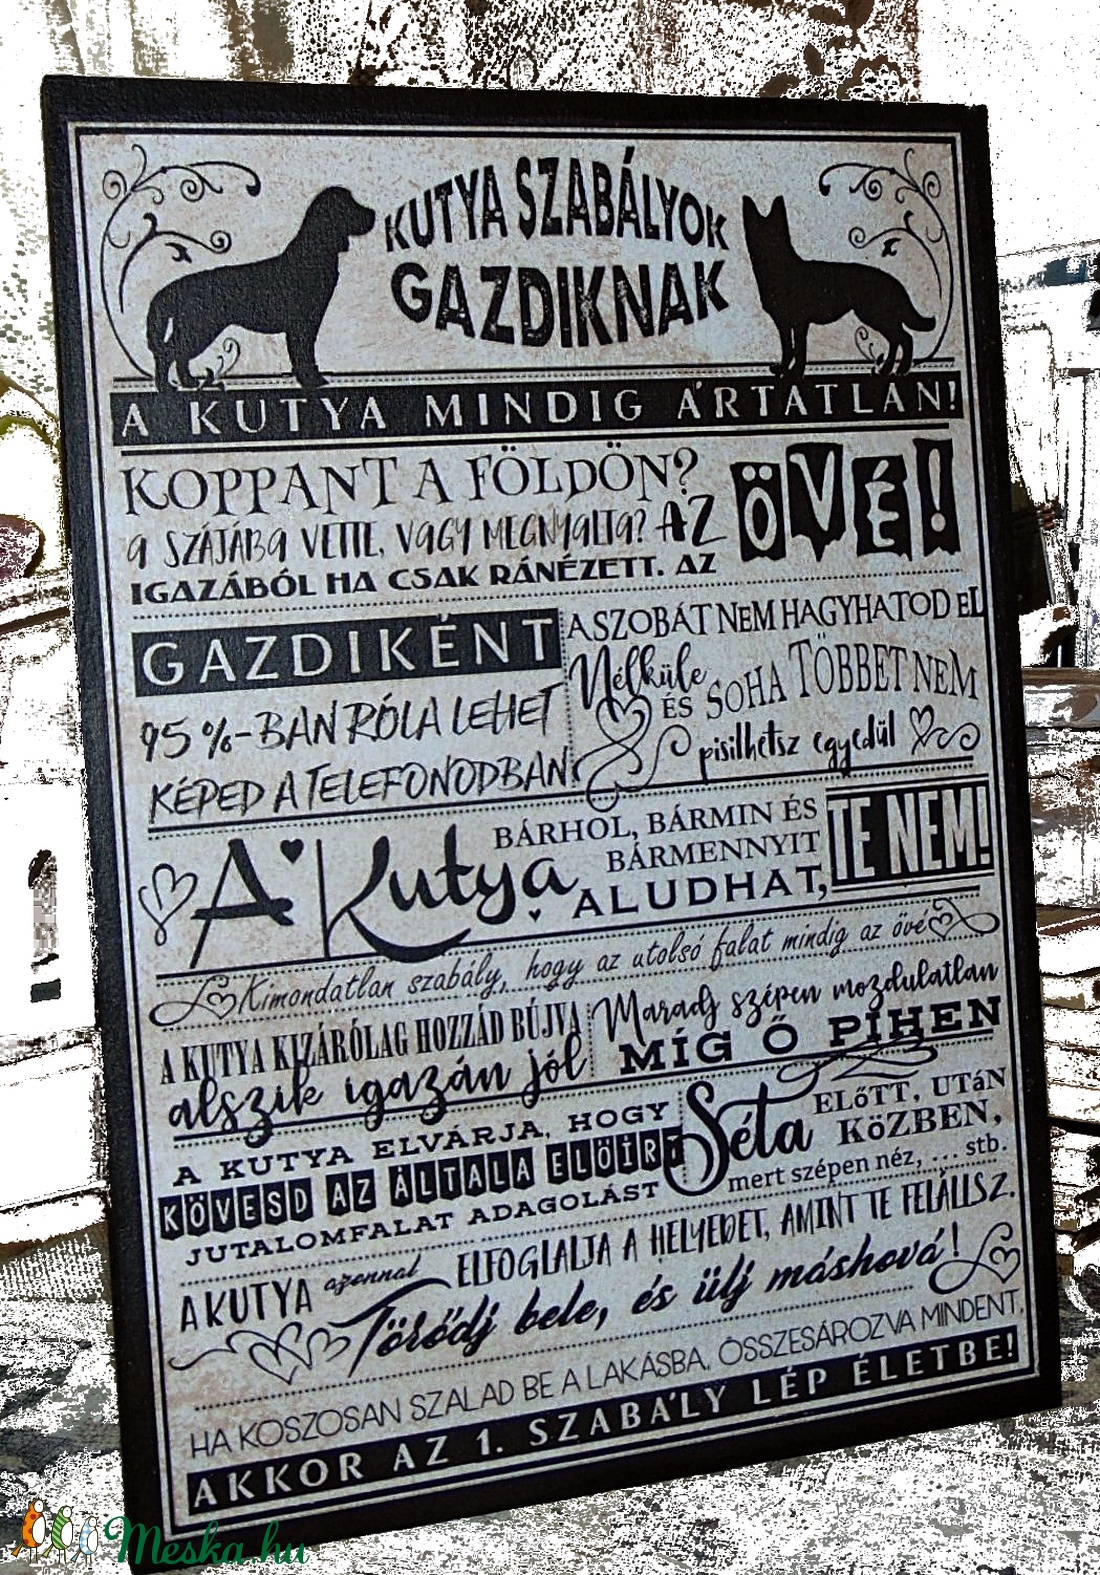 KUTYA SZABÁLYOK
GAZDIKNAK
A KUTYA MINDIG ÁRTATLAN!
KOPPANT A FÖLDÖN?
A SZÁJÁBA VETTE, VAGY MEGNYALTA? AZ
IGAZÁBÓL HA CSAK RÁNÉZETT. AZ
ÖVÉ!
GAZDIKÉNT
95 %-BAN RÓLA LEHET
KÉPED A TELEFONODBAN
A SZOBÁT NEM HAGYHATOD EL
Nélküle
ÉS SOHA TÖBBET NEM
pisilhetsz egyedül
A Kutya
BÁRHOL, BÁRMIN ÉS
BÁRMENNYIT
ALUDHAT,
TE NEM!
Kimondatlan szabály, hogy az utolsó falat mindig az övé
A KUTYA KIZÁRÓLAG HOZZÁD BÚJVA
alszik igazán jól
Maradj szépen mozdulatlan
MÍG Ő PIHEN
A KUTYA ELVÁRJA, HOGY
KÖVESD AZ ÁLTALA ELŐÍRT
JUTALOMFALAT ADAGOLÁST
Séta ELŐTT, UTÁN
KÖZBEN,
mert szépen néz, ... stb.
A KUTYA azonnal ELFOGLALJA A HELYEDET, AMINT TE FELÁLLSZ.
Törődj bele, és ülj máshová!
HA KOSZOSAN SZALAD BE A LAKÁSBA, ÖSSZESÁROZVA MINDENT,
AKKOR AZ 1. SZABÁLY LÉP ÉLETBE!
Meska.hu